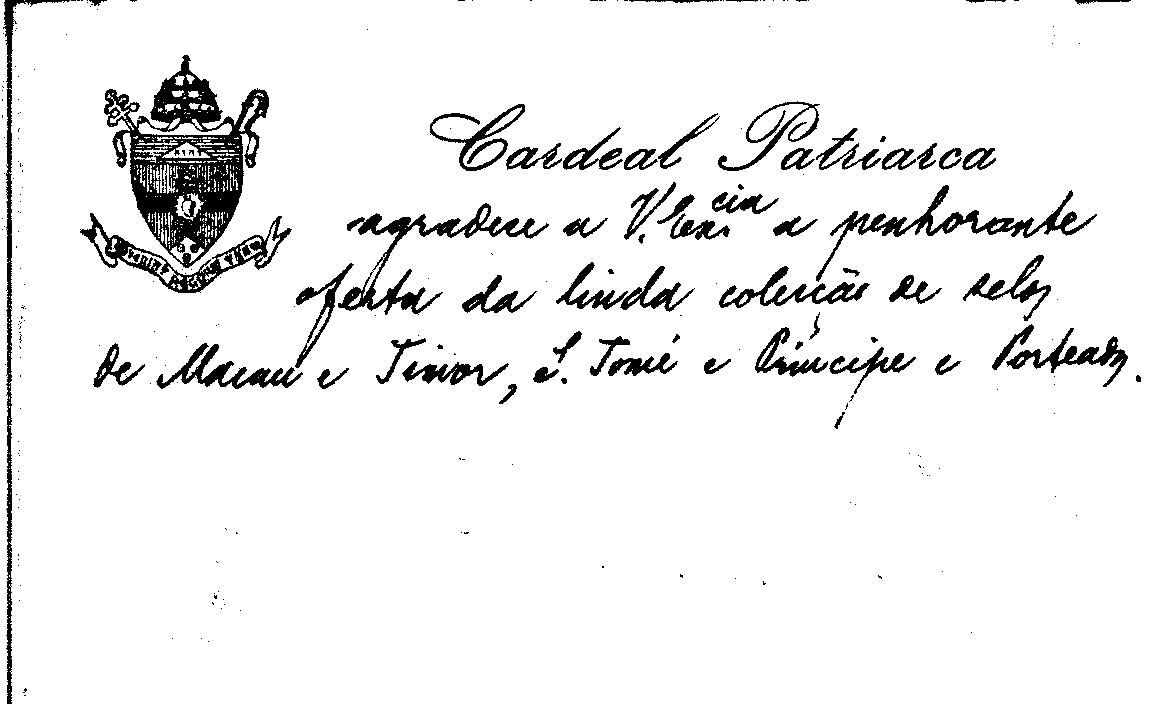 Cardeal Patriarca
agradece a V. Ex.cia a penhorante
oferta da linda colecção de selos
de Macau e Timor, S. Tomé e Príncipe e Porteados.